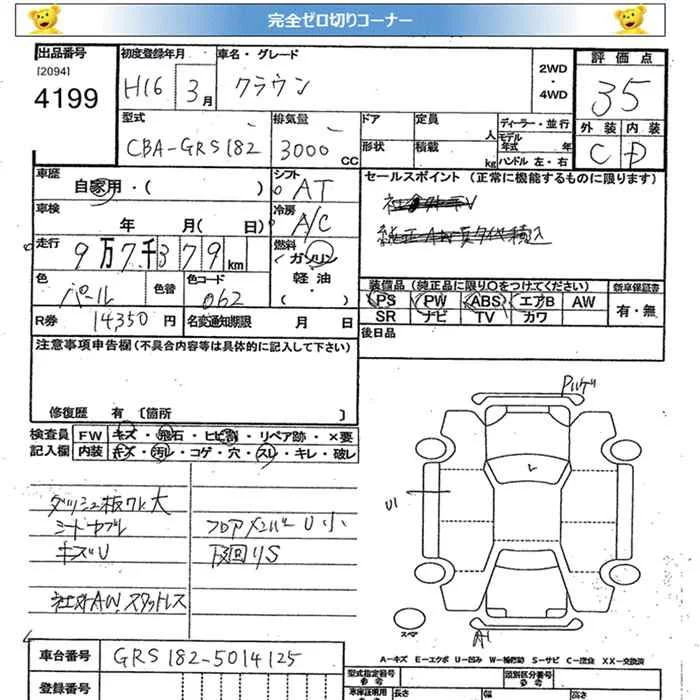 完全ゼロ切りコーナー
出品番号 初度登録年月 車名・グレード 評価点
[2094] 4199 H16 3月 クラウン 2WD・4WD 35
型式 排気量 ドア 定員 人 ディーラー・並行 外装 内装
CBA-GRS182 3000 CC 形状 積載 kg モデル年式 年 ハンドル 左・右 C D
車歴 シフト セールスポイント (正常に機能するものに限ります)
自家用・( ) AT
車検 年 月( 日) 冷房 A/C
走行 9万7千379km 燃料 ガソリン・軽油・( )
色 パール 色替 色コード 062
装備品 (純正品に限り○をつけてください) 新車保証書
PS PW ABS エアB AW 有・無
SR ナビ TV カワ
R券 14350円 名変通知期限 月 日 後日品
注意事項申告欄 (不具合内容等は具体的に記入して下さい)
修復歴 有 〔箇所 〕
検査員 FW キズ・飛石・ヒビ割・リペア跡・×要
記入欄 内装 キズ・汚レ・コゲ・穴・スレ・キレ・破レ
ダッシュ板ワレ大
シートヤブレ フロアメンバーU小
キズU 下回りS
社外AW スタットレス
U1
A1
スマ
A-キズ E-エクボ U-凹み W-補修跡 S-サビ C-腐食 XX-交換済
車台番号 GRS182-5014125
型式指定番号 類別区分番号
参考 参考
登録番号 長さ 幅 高さ